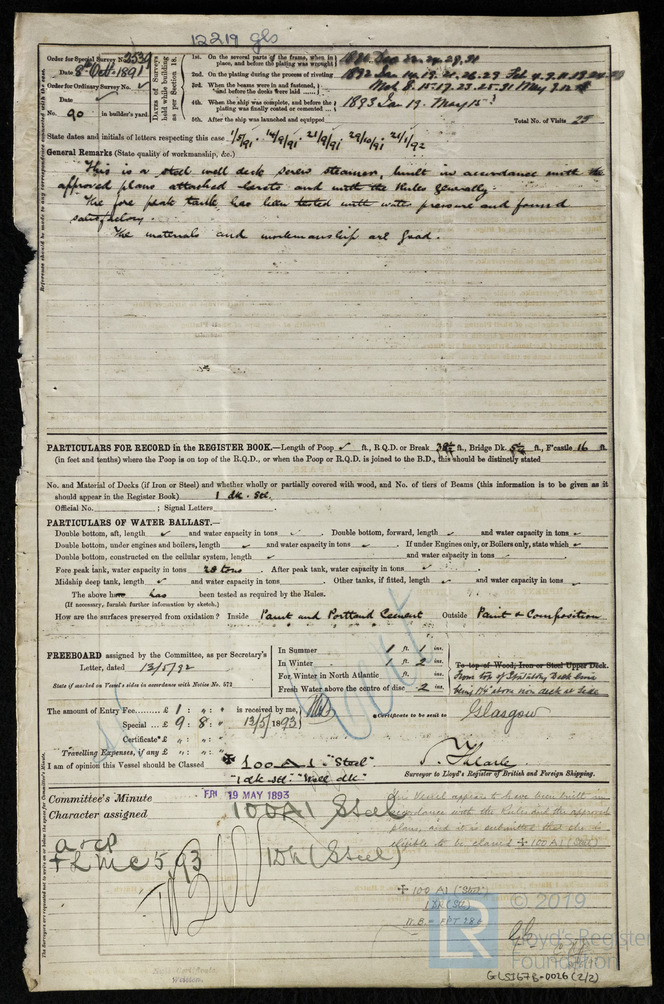 12219 gls
Order for Special Survey No. 2539
Date 8th Oct 1891
Order for Ordinary Survey No.
Date
No. 90 in builder's yard.
Dates of Surveys held while building as per Section 18.
1st. On the several parts of the frame, when in place, and before the plating was wrought
2nd. On the plating during the process of riveting
3rd. When the beams were in and fastened, and before the decks were laid
4th. When the ship was complete, and before the plating was finally coated or cemented 1893 Jan 19. May 15
5th. After the ship was launched and equipped
Total No. of Visits 25
State dates and initials of letters respecting this case 1/5/91. 14/9/91. 21/9/91 29/10/91. 21/1/92
General Remarks (State quality of workmanship, &c.)
This is a steel well deck screw steamer, built in accordance with the
approved plans attached hereto and with the Rules generally.
The fore peak tank has been tested with water pressure and found
satisfactory.
The materials and workmanship are good.
PARTICULARS FOR RECORD in the REGISTER BOOK.—Length of Poop ✓ ft., R.Q.D. or Break ft., Bridge Dk. ft., F'castle 16 ft.
(in feet and tenths) where the Poop is on top of the R.Q.D., or when the Poop or R.Q.D. is joined to the B.D., this should be distinctly stated
No. and Material of Decks (if Iron or Steel) and whether wholly or partially covered with wood, and No. of tiers of Beams (this information is to be given as it
should appear in the Register Book) 1 dk. Stl.
Official No. ; Signal Letters
PARTICULARS OF WATER BALLAST.—
Double bottom, aft, length ✓ and water capacity in tons ✓. Double bottom, forward, length ✓ and water capacity in tons ✓
Double bottom, under engines and boilers, length ✓ and water capacity in tons ✓. If under Engines only, or Boilers only, state which ✓
Double bottom, constructed on the cellular system, length ✓ and water capacity in tons ✓.
Fore peak tank, water capacity in tons 28 tons. After peak tank, water capacity in tons ✓
Midship deep tank, length ✓ and water capacity in tons. Other tanks, if fitted, length ✓ and water capacity in tons ✓
The above has been tested as required by the Rules.
(If necessary, furnish further information by sketch.)
How are the surfaces preserved from oxidation? Inside Paint and Portland Cement Outside Paint & Composition
FREEBOARD assigned by the Committee, as per Secretary's
Letter, dated 13/5/92
State if marked on Vessel's sides in accordance with Notice No. 572
In Summer 1 ft. 1 ins.
In Winter 1 ft. 2 ins.
For Winter in North Atlantic ft. ins.
Fresh Water above the centre of disc 2 ins.
To top of Wood, Iron or Steel Upper Deck.
From top of Statutory Deck line
being above iron deck at side
The amount of Entry Fee £ 1 : " : " is received by me,
Special £ 9 : 8 : 13/5/1893
Certificate £ " : " :
Travelling Expenses, if any £ " : " :
Certificate to be sent to Glasgow
I am of opinion this Vessel should be Classed ✠ 100 A1 "Steel"
"1 dk stl" "Well dk"
Surveyor to Lloyd's Register of British and Foreign Shipping.
Committee's Minute FRI. 19 MAY 1893
Character assigned 100 A1 Steel
+ LMC 5.93 1 Dk (Steel)
This Vessel appears to have been built in
accordance with the Rules and the approved
plans, and it is submitted that she is
eligible to be classed ✠ 100 A1 (Steel)
✠ 100 A1 ("Steel")
1 Dk (Stl)
W.B - FPT 28t
© 2019
LR Lloyd's Register
Foundation
GLSI67B-0026 (2/2)